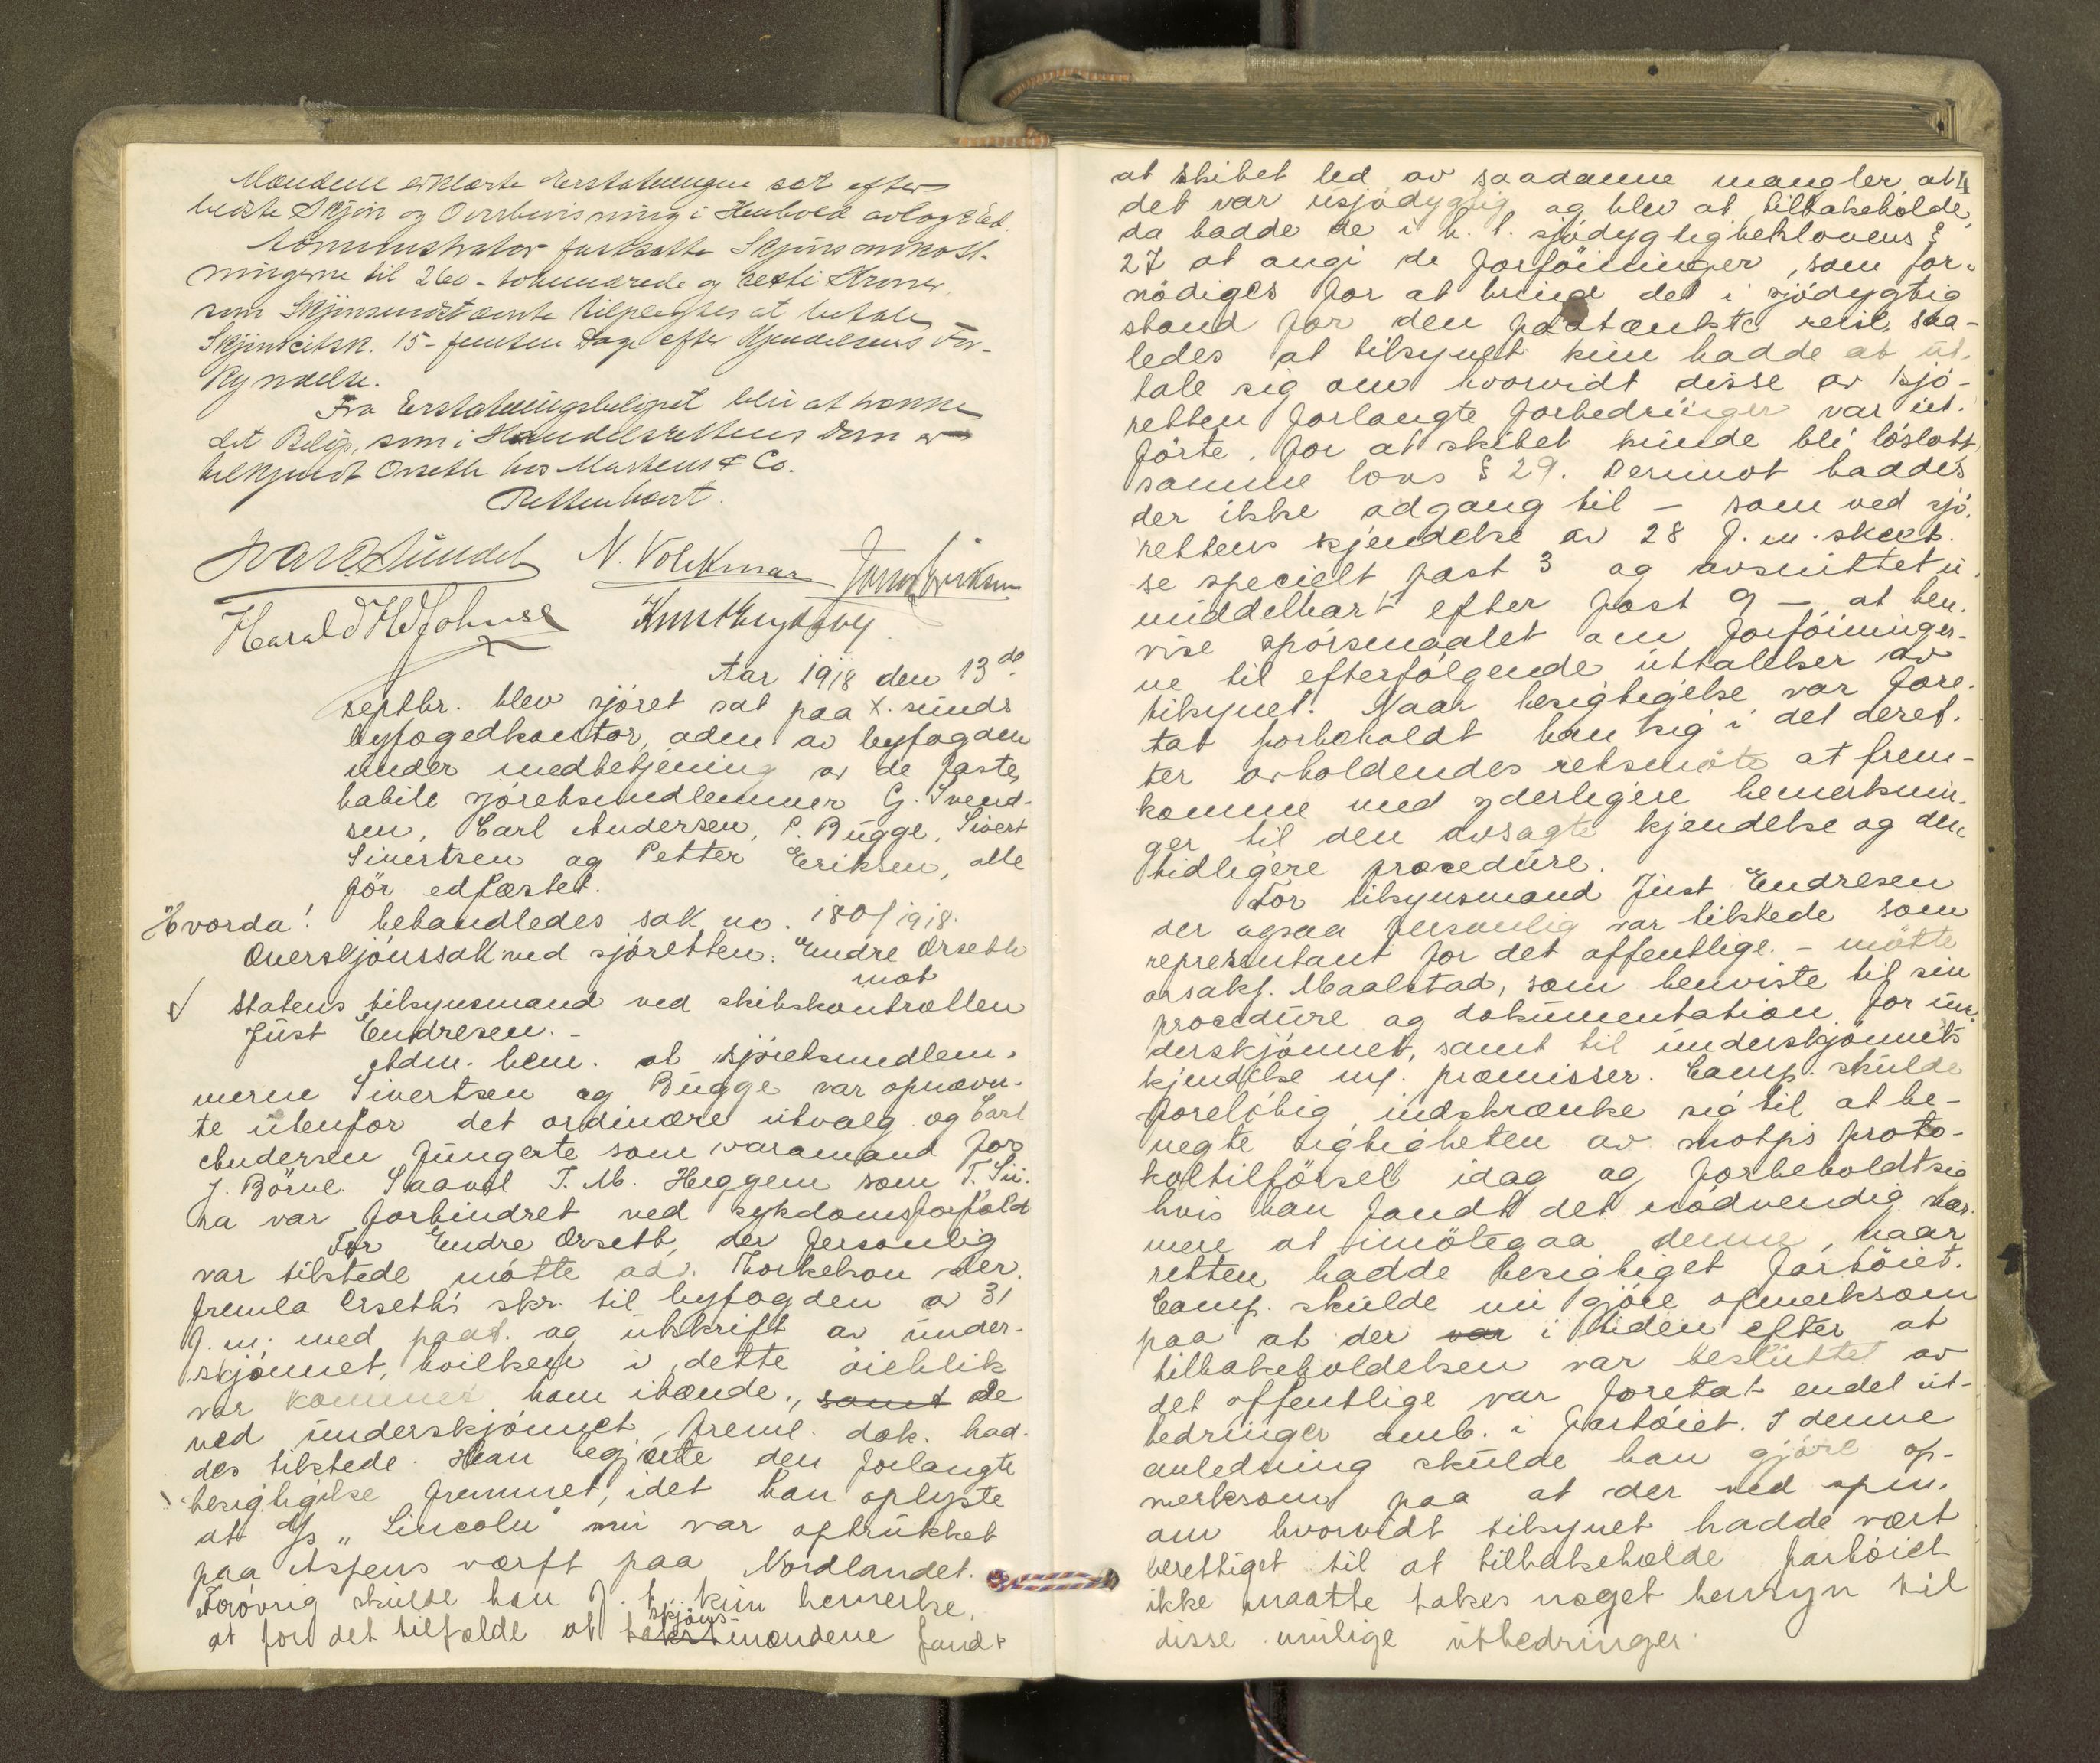 Mændene erklærte Erstatningen sat efter
bedste Skjøn og Overbevisning i Henhold avlagt Ed.
Administrator fastsatte Skjønsomkost-
ningerne til 260 - tohundrede og sexti Kroner,
som Skjønsindstævnte tilpligtes at betale
Skjønscitsk. 15 - femten Dage efter Kjendelsens For-
kyndelse.
Fra Erstatningsbeløpet blir at trække
det Beløp, som i Handelsrettens Dom er
tilkjendt Orseth hos Martens & Co.
Retten hævet.
Ivar Sundet N. Volckmar Jonas Eriksen
Harald H Johnsen
Aar 1918 den 13de
septbr. blev sjöret sat paa X. sunds
byfogedkontor, adm. av byfogden
under medbetjening av de faste,
habile sjöretsmedlemmer G. Svend-
sen, Carl Andersen, P. Bugge, Sivert
Sivertsen og Petter Eriksen, alle
för edfæstet.
Hvorda! behandledes sak no. 180/1918.
Overskjönssak ved sjöretten: Endre Orseth
mot
Statens tilsynsmand ved skibskontrollen
Just Endresen. -
Adm. bem. at sjöretsmedlem-
merne Sivertsen og Bugge var opnævn-
te utenfor det ordinære utvalg og Carl
Andersen fungerte som varamand for
J. Börve. Saavel T. M. Heggem som T. Su-
ha var forhindret ved sykdomsforfald
For Endre Orseth, der personlig
var tilstede mötte adv. Thorkelson der
fremla Orseth's skr. til byfogden av 31
f. m. med paat. og utskrift av under-
skjönnet, hvilken i dette öieblik
var kommet ham ihænde, samt de
ved underskjönnet freml. dok. had-
des tilstede. Han begjærte den forlangte
besigtigelse fremmet, idet han oplyste
at d/s "Lincoln" nu var optrukket
paa Aspens værft paa Nordlandet.
Forövrig skulde han f. t. kun bemerke,
at for det tilfælde at skjöns-
takstmændene fandt
4
at skibet led av saadanne mangler, at
det var usjödygtig og blev at tilbakeholde,
da hadde de i h. t. sjödygtighetslovens §
27 at angi de forföininger, som for-
nödiges for at bringe det i sjödygtig
stand for den paatænkte reise, saa-
ledes at tilsynet kun hadde at ut-
tale sig om hvorvidt disse av sjö-
retten forlangte forbedringer var ut-
förte, for at skibet kunde bli löslatt,
samme lovs § 29. Derimot haddes
der ikke adgang til - som ved sjö-
rettens kjendelse av 28 f. m. skeet.
se specielt post 3 og avsnittet u-
middelbart efter post 9 - at hen-
vise spörsmaalet om forföininger-
ne til efterfölgende uttalelser av
tilsynet. Naar besigtigelse var fore-
tat forbeholdt han sig i det deref-
ter avholdendes retsmöte at frem-
komme med yderligere bemerknin-
ger til den avsagte kjendelse og den
tidligere procedure.
For tilsynsmand Just Endresen
der ogsaa personlig var tilstede som
representant for det offentlige. - mötte
orsakf. Maalstad, som henviste til sin
procedure og dokumentation for un-
derskjönnet, samt til underskjönnets
kjendelse m/. præmisser. Comp. skulde
forelöbig indskrænke sig til at be-
negte rigtigheten av motp's proto-
koltilförsel idag og forbeholdt sig
hvis han fandt det nödvendig nær-
mere at imötegaa denne, naar
retten hadde besigtiget fartöiet.
Comp. skulde nu gjöre opmerksom
paa at der var i tiden efter at
tilbakeholdelsen var besluttet av
det offentlige var foretat endel ut-
bedringer omb. i fartöiet. I denne
anledning skulde han gjöre op-
merksom paa at der ved spm.
om hvorvidt tilsynet hadde vært
berettiget til at tilbakeholde fartöiet
ikke maatte takes noget hensyn til
disse mulige utbedringer.